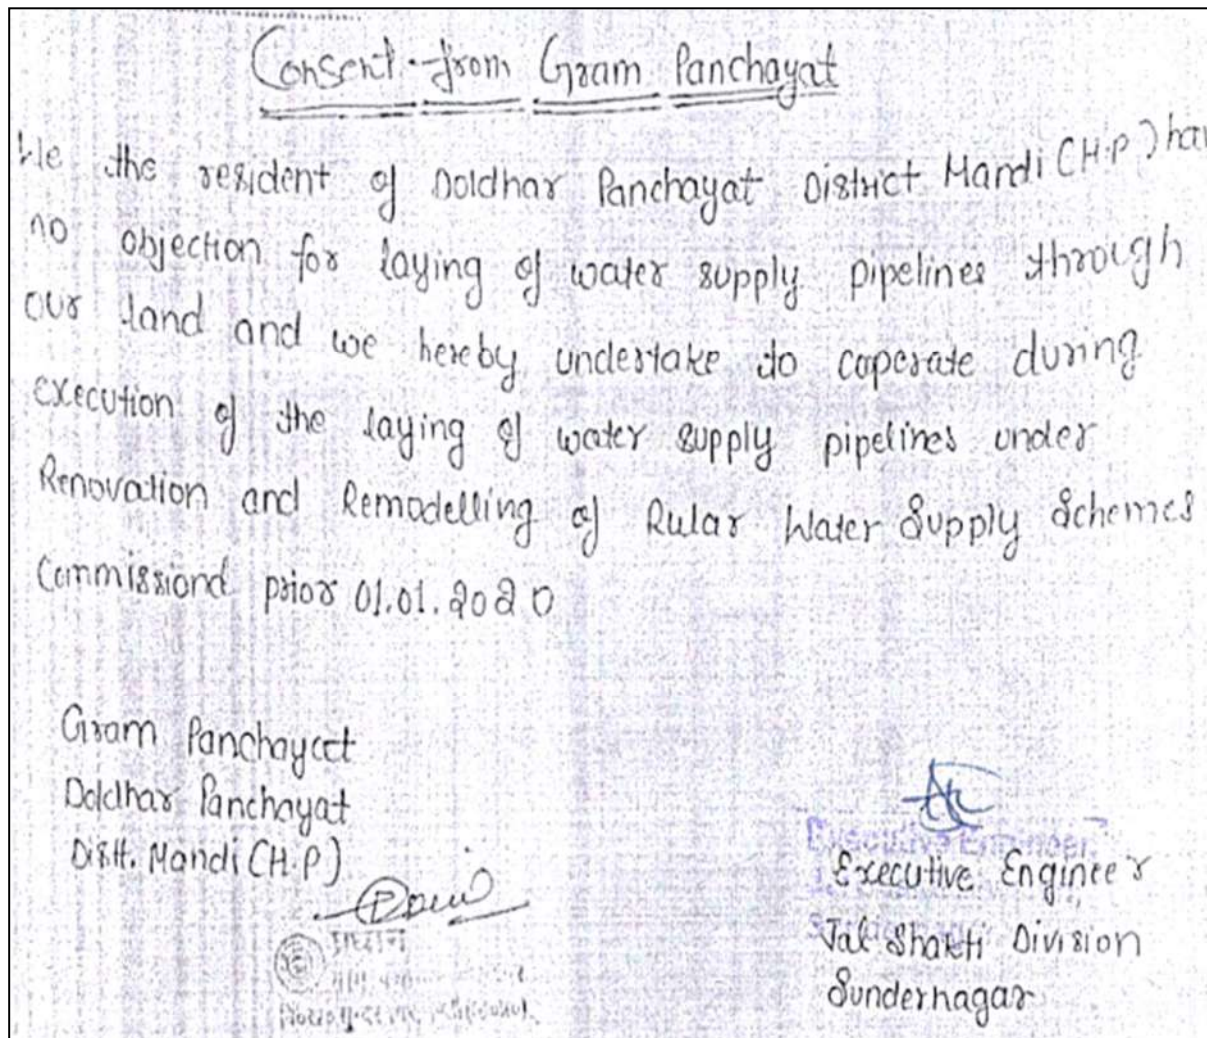 Consent from Gram Panchayat
We the resident of Doldhar Panchayat District Mandi (H.P) hav
no objection for laying of water supply pipelines through
our land and we hereby undertake to coperate during
execution of the laying of water supply pipelines under
Renovation and Remodelling of Rular Water Supply Schemes
Commissiond prior 01.01.2020
Gram Panchayat
Doldhar Panchayat
Distt. Mandi (H.P)
Executive Engineer
Executive Engineer
Jal Shakti Division
Sundernagar